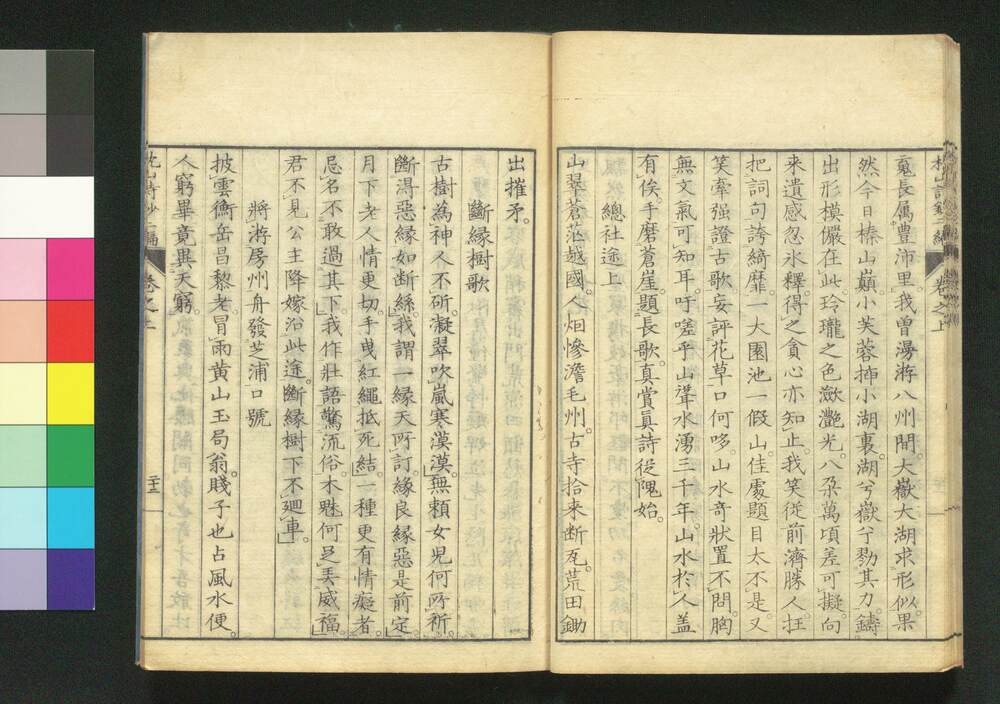 蒐長属豊沛里。我曽湯游八州間。大嶽大湖求形似。果
然今日榛山巓。小芙蓉挿小湖裏。湖兮嶽兮勠其力。鑄
出形模儼在此。玲瓏之色瀲灔光。八朶萬頃差可擬。向
来遺感忽氷釋。得之貪心亦知止。我笑従前濟勝人。抂
把詞句誇綺靡。一大園池一假山。佳處題目太不是。又
笑牽强證古歌。妄評花草口何哆。山水竒狀置不問。胸
無文氣可知耳。吁嗟乎山聳水湧三千年。山水於人蓋
有俟。手磨蒼崖題長歌。真賞眞詩従隗始。
總社途上
山翠蒼茫越國。人烟慘澹毛州。古寺拾来断瓦。荒田鋤
出摧矛。
斷縁樹歌
古樹爲神人不斫。凝翠吹嵐寒漠漠。無頼女児何所祈。
斷得惡縁如断絲。我謂一縁天所訂。縁良縁惡是前定。
月下老人情更切。手曵紅繩抵死結。一種更有情癡者。
忌名不敢過其下。我作壯語驚流俗。木魅何足弄威福。
君不見公主降嫁沿此途。斷縁樹下不廻車。
將游房州舟發芝浦口號
披雲衡岳昌黎老。冒雨黄山玉局翁。賤子也占風水便。
人窮畢竟異天窮。